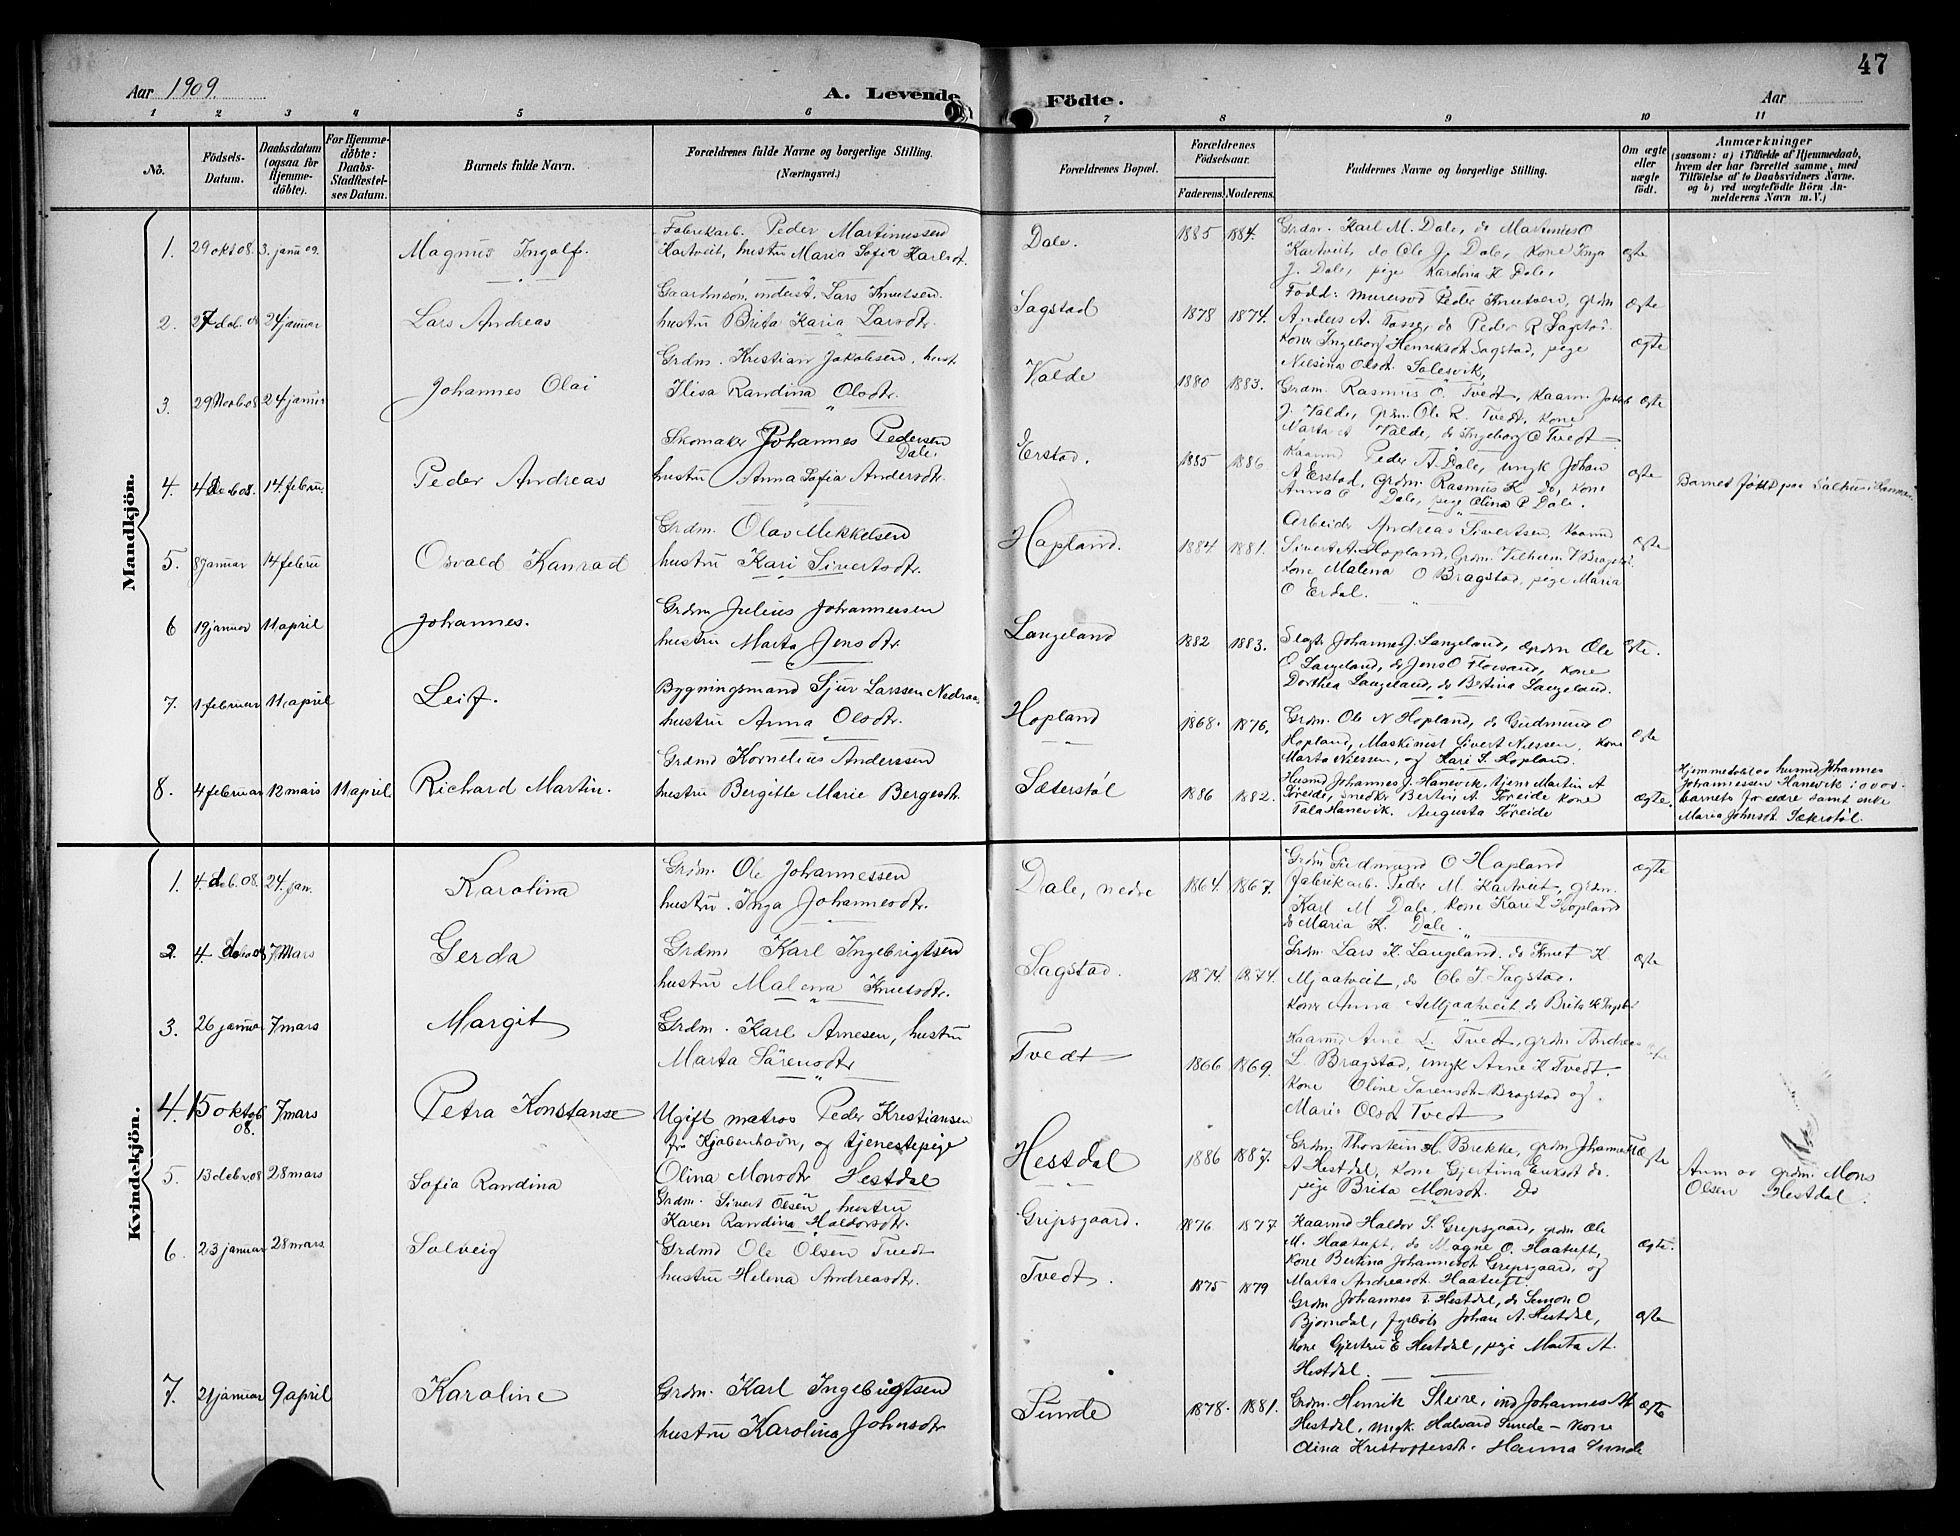 47
Aar 1909.
A. Levende Födte.
Aar
1 2 3 4 5 6 7 8 9 10 11
No.
Födsels-Datum.
Daabsdatum (ogsaa for Hjemme-döbte).
For Hjemme-döbte: Daabs-Stadfestel-ses Datum.
Barnets fulde Navn.
Forældrenes fulde Navne og borgerlige Stilling. (Næringsvei.)
Forældrenes Bopæl.
Forældrenes Födselsaar.
Faderens. Moderens.
Faddernes Navne og borgerlige Stilling.
Om ægte eller uægte födt.
Anmærkninger
(saasom: a) i Tilfælde af Hjemmedaab, hvem der har forrettet samme, med Tilföielse af to Daabsvidners Navne. og b) ved uægtefödte Börn An-melderens Navn m. V.)
Mandkjön.
1. 29 okt 08. 3. janu 09. Magnus Ingolf.
Fabrikarb. Peder Martinussen
Kartveit, hustru Maria Sofia Karlsdt.
Dale. 1885 1884.
Grdm. Karl M. Dale, do Martinus O
Kartveit, do Ole J. Dale, Kone Inga
J. Dale, pige Karolina K Dale,
ægte
2. 27 deb. 08 24 januar Lars Andreas
Gaardmsön, inderst, Lars Knutsen
hustru Brita Karia Larsdtr.
Sagstad 1878 1874.
Född: murersvd Peder Knutsen, grdm
Anders A. Tosse, do Peder R Sagstad
Kone Ingeborg Henriksdt Sagstad, pige
Nilsina Olsdt. Salesvik,
ægte
ægte
3. 29 Novb 08 24 januar Johannes Olai
Grdm. Kristian Jakobsen, hust.
Ilisa Randina Olsdtr.
Valde 1880 1883.
Grdm. Rasmus O. Tvedt, Kaarm. Jakob
J. Valde, grdm. Ole R. Tvedt, Kone
Marta A Valde, do Ingeborg O Tvedt
ægte
4. 4 Deb 08. 14. febru. Peder Andreas
Skomaker Johannes Pedersen
Dale,
hustru Anna Sofia Andersdtr.
Erstad. 1885 1886
Kaarmd Peder A. Dale, ungk Johan
A Erstad, Grdm. Rasmus K do, Kone
Anna O Dale, pige Olina P Dale.
ægte
Barnet född paa Salhus i Hammer
5. 8 januar 14 febru Osvald Konrad
Grdm. Olav Mikkelsen
hustru Kari Sivertsdtr.
Hopland. 1884 1881.
Arbeidr Andreas Sivertsen, Kaarmd
Sivert A. Hopland, Grdm. Vilhelm V Bragstad
Kone Malena O Bragstad, pige Maria
O Erdal.
ægte
6 19 januar 11 april Johannes.
Grdm Julius Johannessen
hustru Marta Jensdtr.
Langeland 1882 1883.
Slagtr Johannes J. Langeland, grdm Ole
O Langeland, do Jens O Floesand, Kone
Dorthea Langeland, do Bertina Langeland.
ægte.
7. 1 februar 11, april Leif.
Bygningsmand Sjur Larssen Nedraas,
hustru Anna Olsdtr.
Hopland 1868. 1876.
Grdm. Ole N Hopland, do Gudmund O
Hopland, Maskinist Sivert Nilssen, Kone
Marta Nilssen, og Kari S. Hopland.
ægte
8. 4 februar 12 mars 11 april Richard Martin.
Grdmd Kornelius Anderssen
hustru Bergitte Marie Bergesdt.
Sæterstøl 1886 1882.
Husmd Johannes J. Hanevik, tjener Martin A
Søreide, snedkr Bertin A. Søreide Kone
Tala Hanevik. Augusta Søreide
ægte.
Hjemmedøbt av husmd Johannes
Johannessen Hanevik i overv.
barnets forældre samt enke
Maria Johnsdt Sæterstøl.
Kvindekjön.
1. 4. deb. 08. 24. jan. Karolina
Grdm. Ole Johannessen
hustru. Inga Johannesdtr.
Dale, nedre 1864. 1867.
Grdm. Gudmund O Hopland
fabrikarb. Peder M Kartveit, grdm.
Karl M Dale, Kone Kari L Hopland
do Maria K. Dale.
ægte
2. 4. debr 08 7 Mars Gerda
Grdmd Karl Ingebrigtsen
hustru Malena Knutsdtr.
Sagstad. 1874. 1874.
Grdm. Lars K. Langeland, do Knut K
Mjaatveit, do Ole I. Sagstad.
Kone Anna A Mjaatveit, do Brita
ægte
3. 26 januar 7 mars Margit
Grdm. Karl Arnesen, hustru
Marta Sörensdtr
Tvedt 1866 1869.
Kaarmd Arne L. Tvedt, grdm Andreas
L. Bragstad, ungk Arne K Tvedt.
Kone Oline Sorensdt Bragstad og
Mari Olsdt Tvedt
ægte
4. 15 oktob 08. 7 mars Petra Konstanse
Ugift matros Peder Kristiansen
fr. Kjøbenhavn, og tjenestepige
Olina Monsdtr Hestdal
Hestdal 1886 1887.
Grdm. Thorstein H. Brekke, grdm Johannes
A Hestdal, Kone Gjertina Eriksdt do.
pige Brita Monsdt. Do
uægte
Anm av grdm. Mons
Olsen Hestdal.
5. 13 debr. 08 28 mars Sofia Randina
Grdm. Sivert Olsen hustru
Karen Randina Haldorsdtr.
Gripsgaard. 1876 1877
Kaarmd Haldor S. Gripsgaard, grdm Ole
M. Haatuft, do Magne O. Haatuft,
Kone Bertina Johannesdt Gripsgaard, og
Marta Andreasdt. Haatuft.
ægte.
6. 23 januar 28 mars. Solveig
Grdmd Ole Olsen Tvedt
hustru Helena Andreasdtr.
Tvedt. 1875 1879
Grdm Johannes T. Hestdal, do Simon O
Bjørndal, fyrbøtr Johan A. Hestdal,
Kone Gjertru E Hestdal, pige Marta A.
Hestdal.
ægte
7. 21 januar 9 april Karoline
Grdm. Karl Ingebrigtsen
hustru Karolina Johnsdtr
Sunde 1878. 1881.
Grdm. Henrik Steire, ind Johannes M
Hestdal, ungk. Halvard Sunde – Kone
Olina Kristoffersdt. Hanna Sunde
ægte